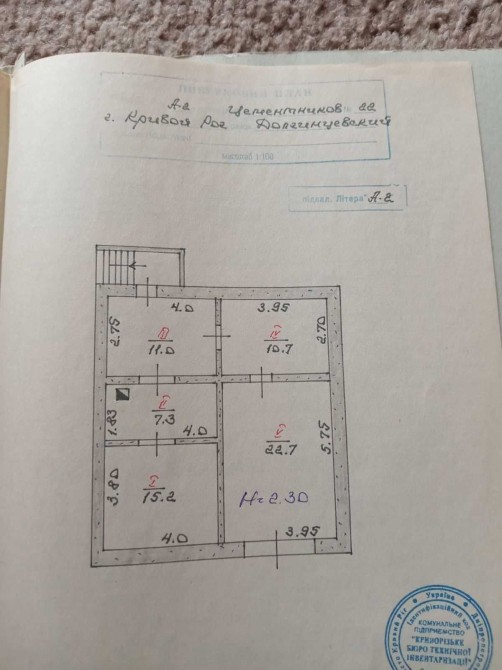 А-2 Цементников 22
г. Кривой Рог Долгинцевский
масштаб 1:100
підвал. Літера" А-2
4.0
3.95
2.75
III
11.0
IV
10.7
2.70
1.83
II
7.3
4.0
V
22.7
5.75
3.80
I
15.2
H=2.30
4.0
3.95
Україна
Ідентифікаційний код
КОМУНАЛЬНЕ
ПІДПРИЄМСТВО
"КРИВОРІЗЬКЕ
БЮРО ТЕХНІЧНОЇ
ІНВЕНТАРИЗАЦІЇ"